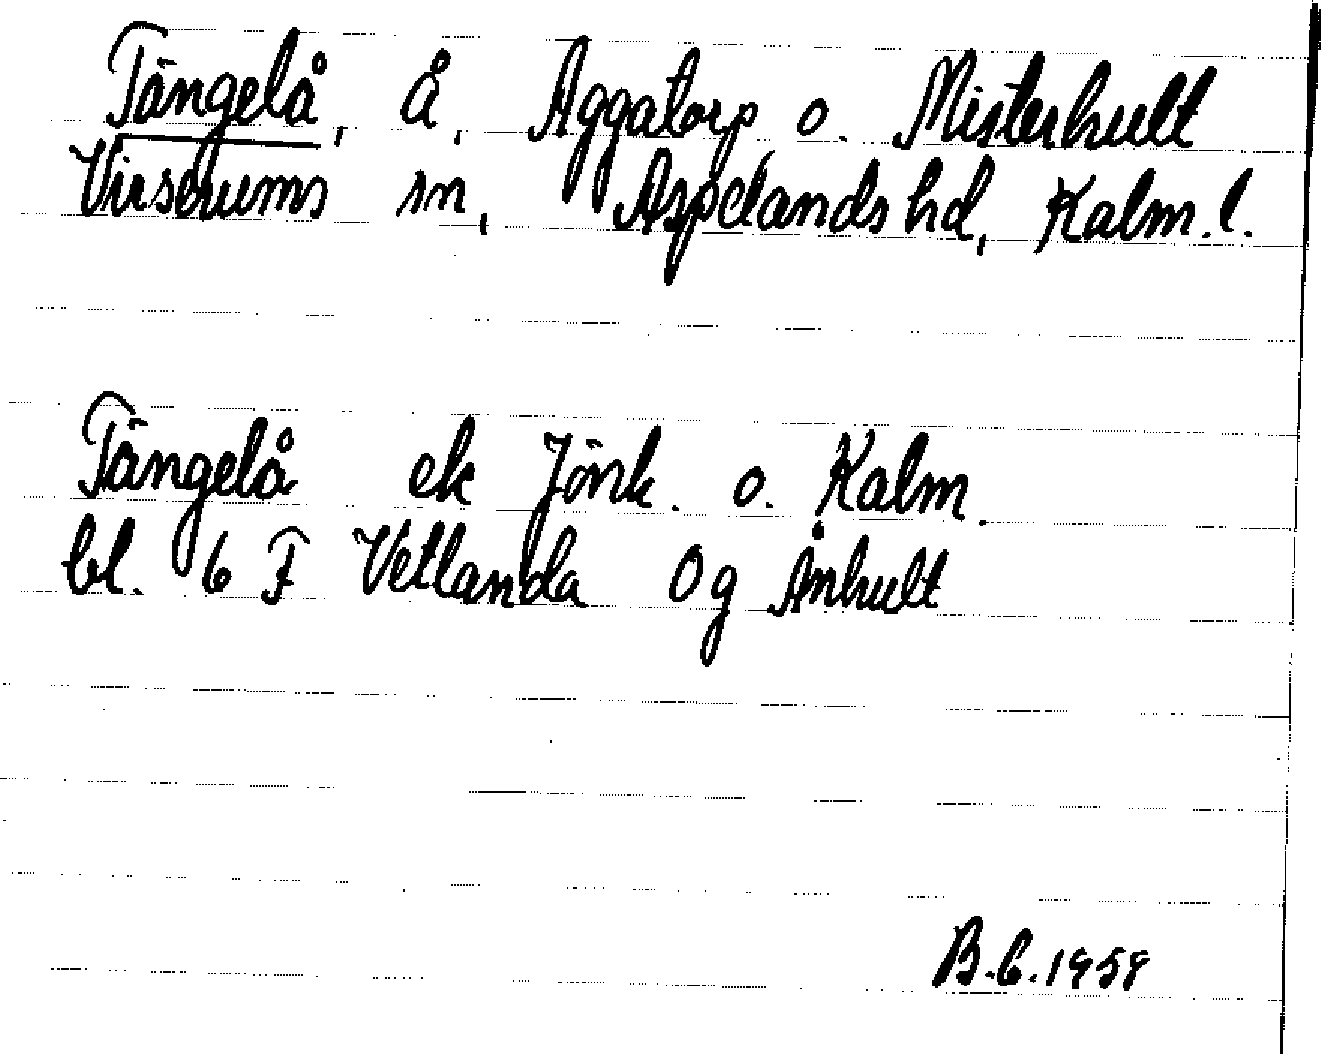 Tängelå, å, Aggatorp o. Misterhult
Virserums sn, Aspelands hd, Kalm. l.
Tängelå ek Jönk. o. Kalm.
bl. 6 F Vetlanda Og Ånhult
B.C. 1959